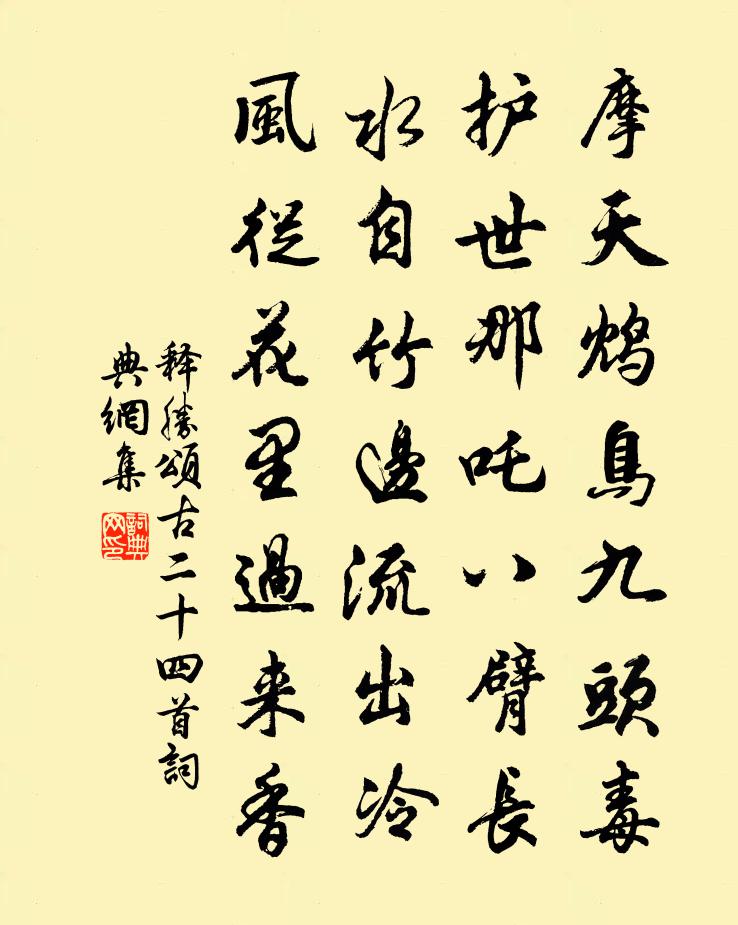 摩天鴆鳥九頭毒
护世那吒八臂長
水自竹邊流出冷
風從花里過来香
释勝頌古二十四首詞
典網集
詞典
网印